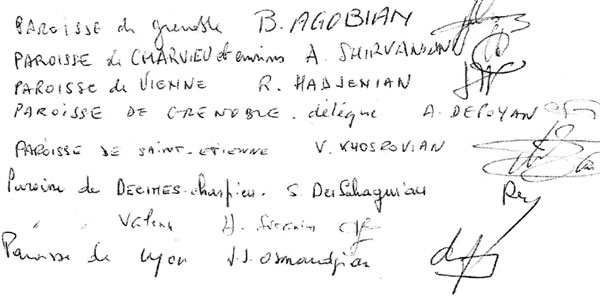 PAROISSE de grenoble B. AGOBIAN
PAROISSE de CHARVIEU et environs A. SHIRVANIAN
PAROISSE de VIENNE R. HADJENIAN
PAROISSE DE GRENOBLE. délégué A. DEPOYAN
PAROISSE DE SAINT-ETIENNE V. KHOSROVIAN
Paroisse de DECINES-charpieu. S. Der Sahaguian
" " Valence A.
Paroisse de Lyon J.J. Osmandjian